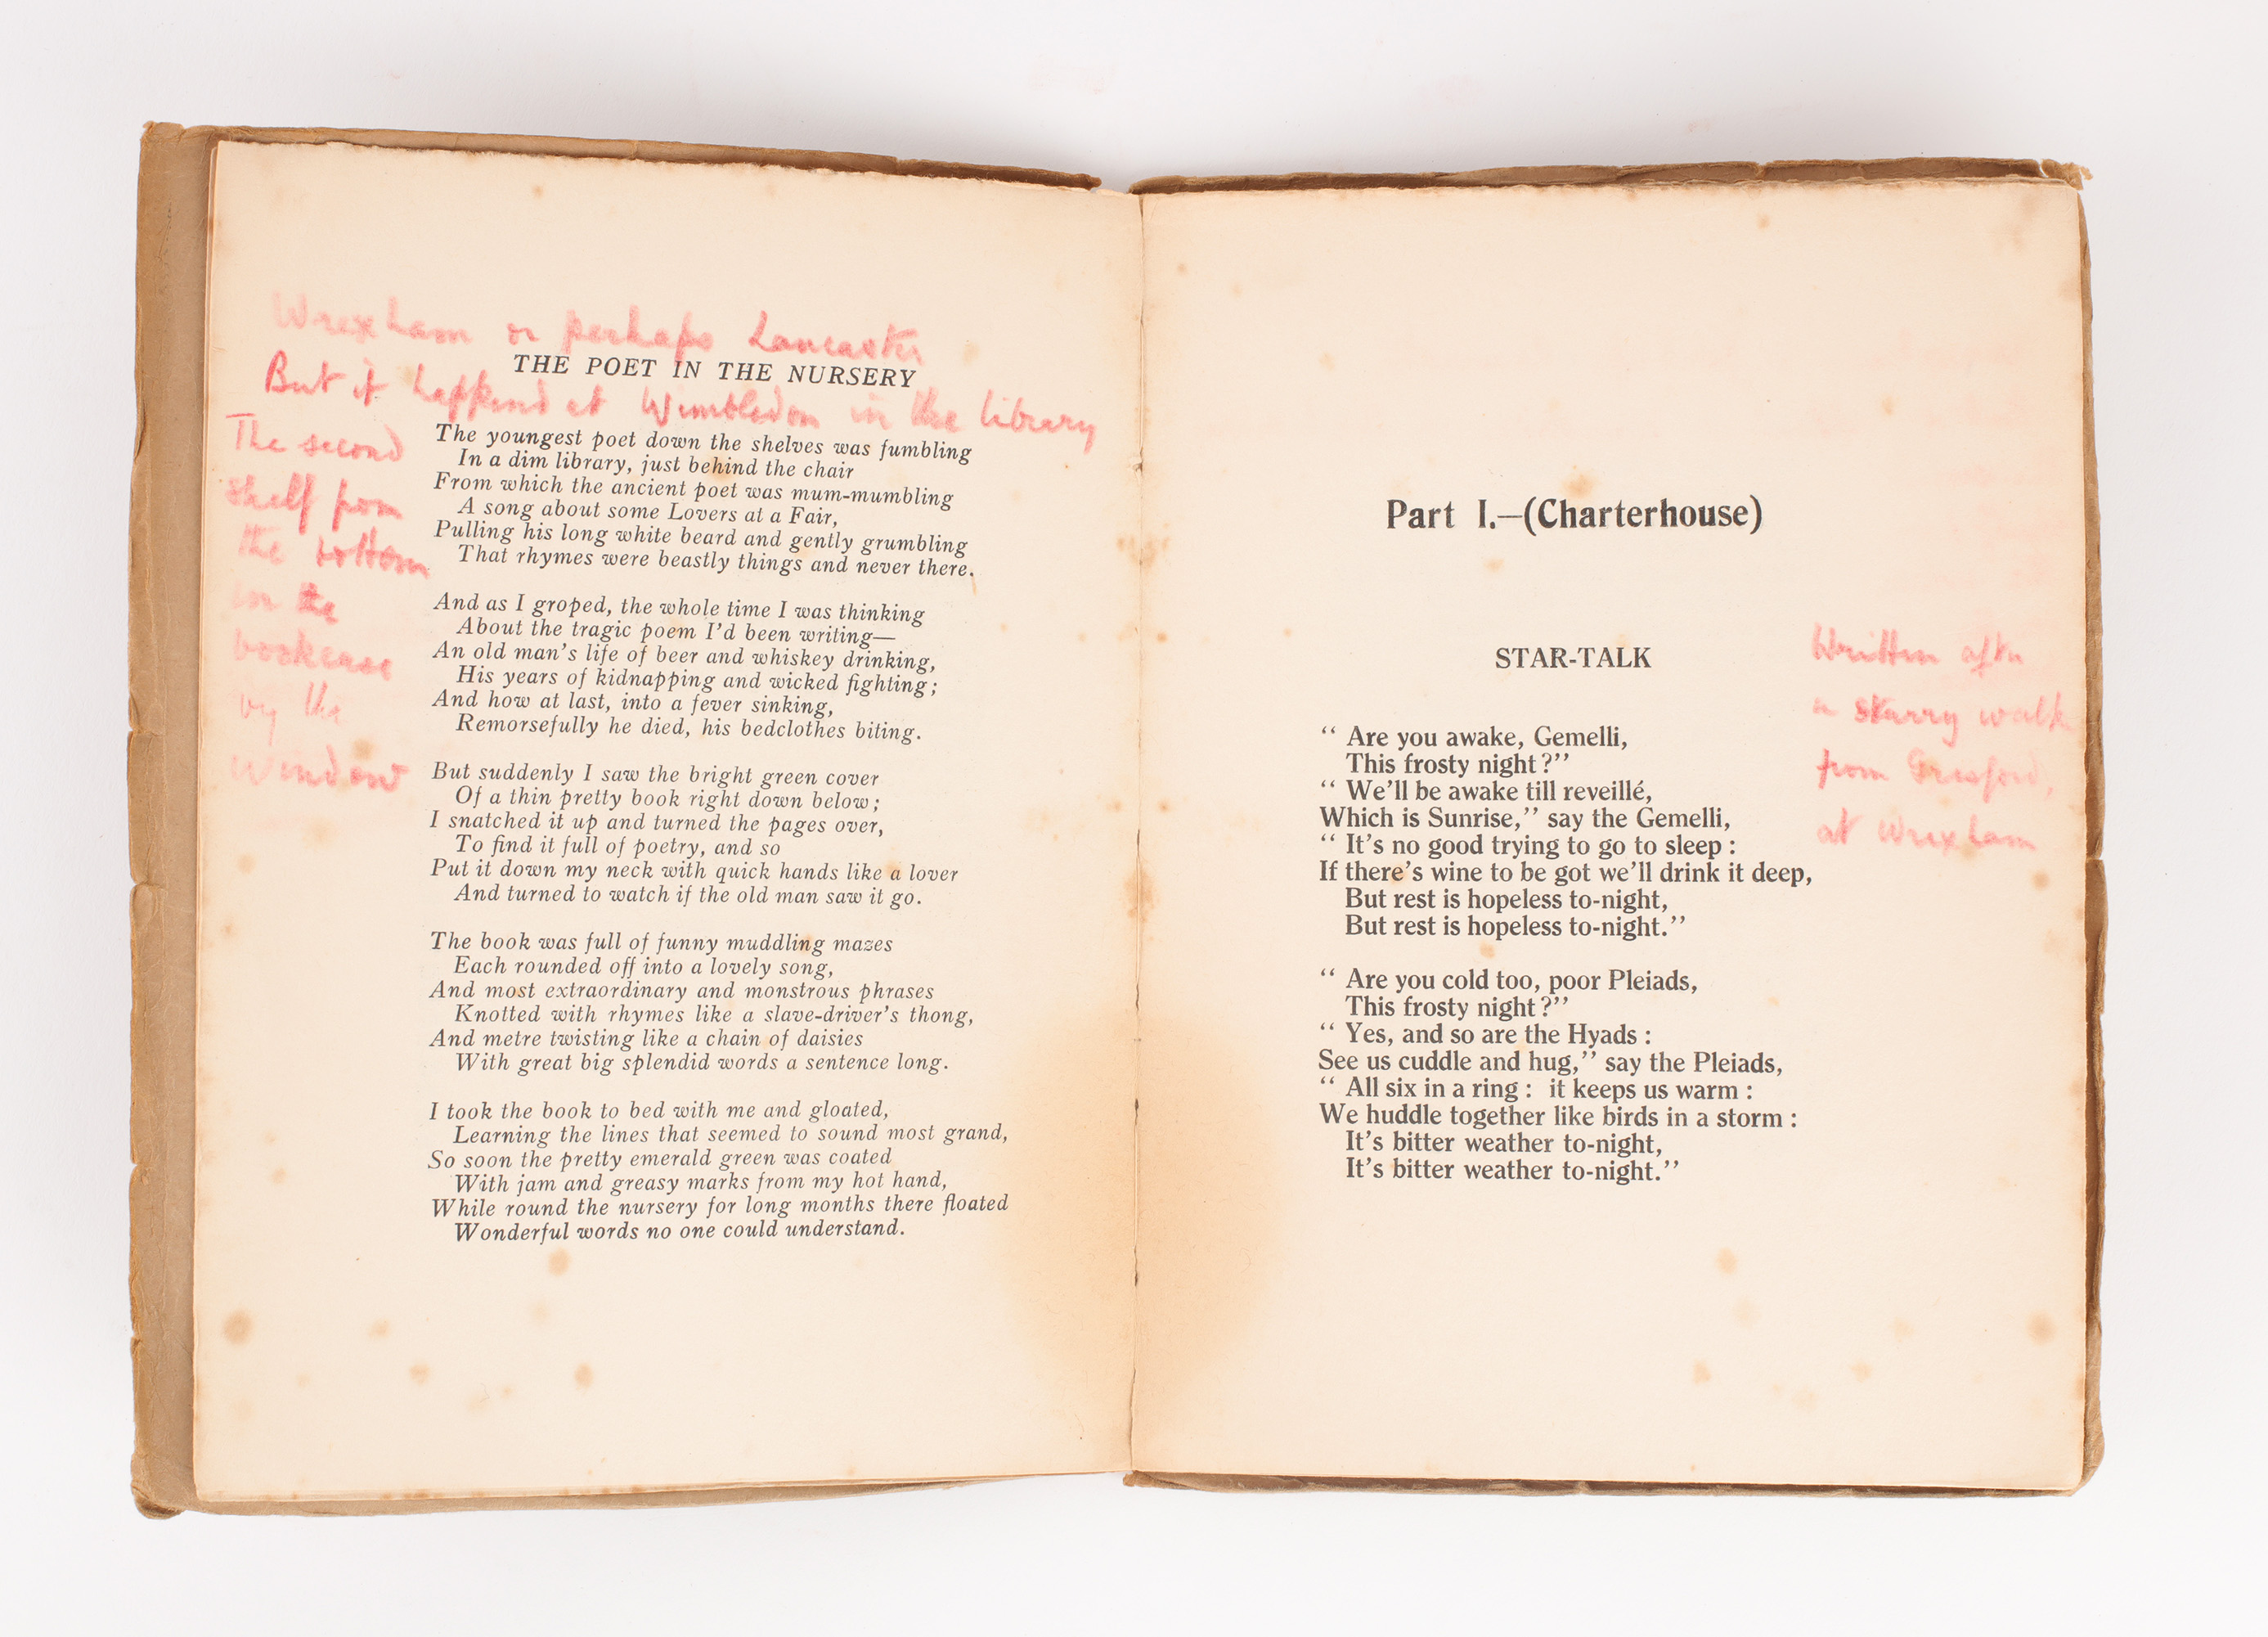 Wrexham or perhaps Lancaster
THE POET IN THE NURSERY
But it happened at Wimbledon in the library
The second
shelf from
the bottom
in the
bookcase
by the
window
The youngest poet down the shelves was fumbling
In a dim library, just behind the chair
From which the ancient poet was mum-mumbling
A song about some Lovers at a Fair,
Pulling his long white beard and gently grumbling
That rhymes were beastly things and never there.
And as I groped, the whole time I was thinking
About the tragic poem I'd been writing—
An old man's life of beer and whiskey drinking,
His years of kidnapping and wicked fighting;
And how at last, into a fever sinking,
Remorsefully he died, his bedclothes biting.
But suddenly I saw the bright green cover
Of a thin pretty book right down below;
I snatched it up and turned the pages over,
To find it full of poetry, and so
Put it down my neck with quick hands like a lover
And turned to watch if the old man saw it go.
The book was full of funny muddling mazes
Each rounded off into a lovely song,
And most extraordinary and monstrous phrases
Knotted with rhymes like a slave-driver's thong,
And metre twisting like a chain of daisies
With great big splendid words a sentence long.
I took the book to bed with me and gloated,
Learning the lines that seemed to sound most grand,
So soon the pretty emerald green was coated
With jam and greasy marks from my hot hand,
While round the nursery for long months there floated
Wonderful words no one could understand.
Part I.—(Charterhouse)
STAR-TALK
Written after
a starry walk
from Gresford,
at Wrexham
“ Are you awake, Gemelli,
This frosty night?”
“ We'll be awake till reveillé,
Which is Sunrise,” say the Gemelli,
“ It's no good trying to go to sleep :
If there's wine to be got we'll drink it deep,
But rest is hopeless to-night,
But rest is hopeless to-night.”
“ Are you cold too, poor Pleiads,
This frosty night?”
“ Yes, and so are the Hyads :
See us cuddle and hug,” say the Pleiads,
“ All six in a ring : it keeps us warm :
We huddle together like birds in a storm :
It's bitter weather to-night,
It's bitter weather to-night.”